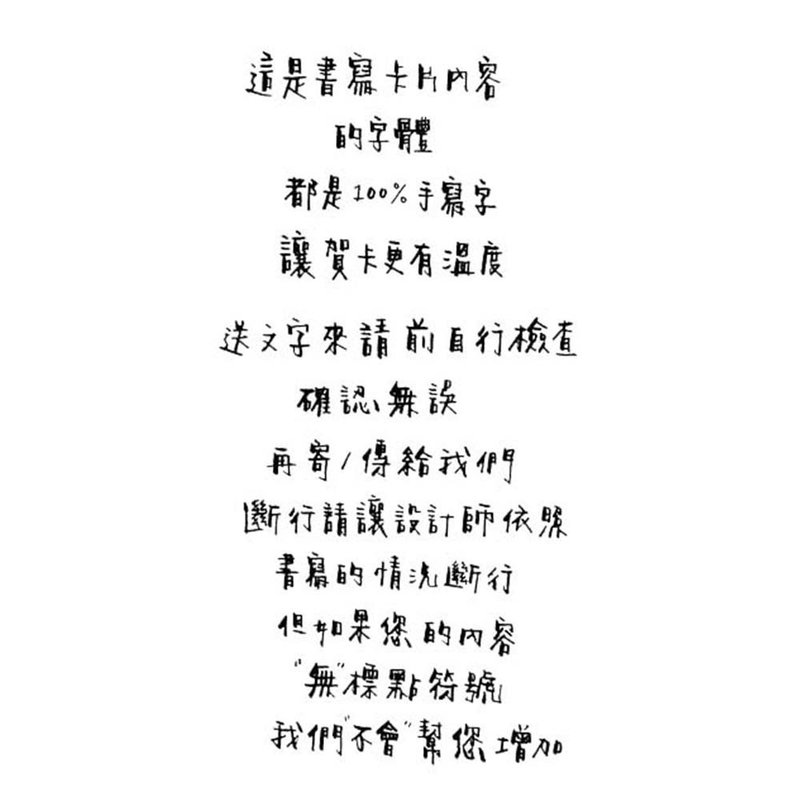 這是書寫卡片內容
的字體
都是100%手寫字
讓賀卡更有溫度
送文字來請前自行檢查
確認無誤
再寄/傳給我們
斷行請讓設計師依照
書寫的情況斷行
但如果您的內容
"無"標點符號
我們"不會"幫您增加